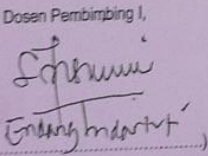 Dosen Pembimbing I,
Endang Indarti
)